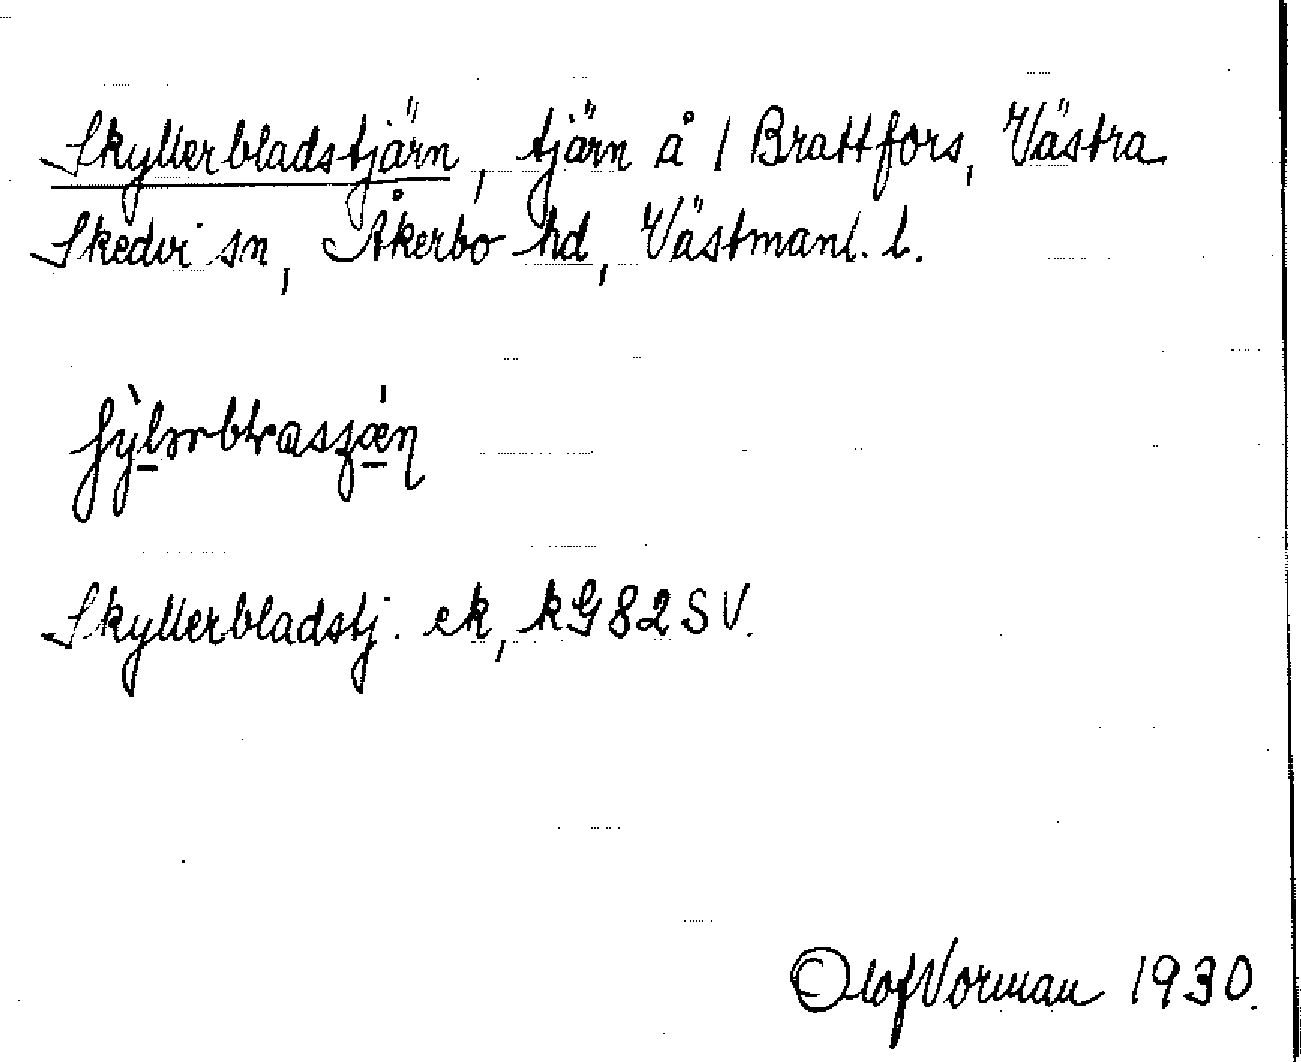 Skyllerbladstjärn, tjärn å 1 Brattfors, Västra
Skedvi sn, Åkerbo hd, Västmanl. l.
Skyllerbladstj. ek, kG82SV.
Olof Vorman 1930.